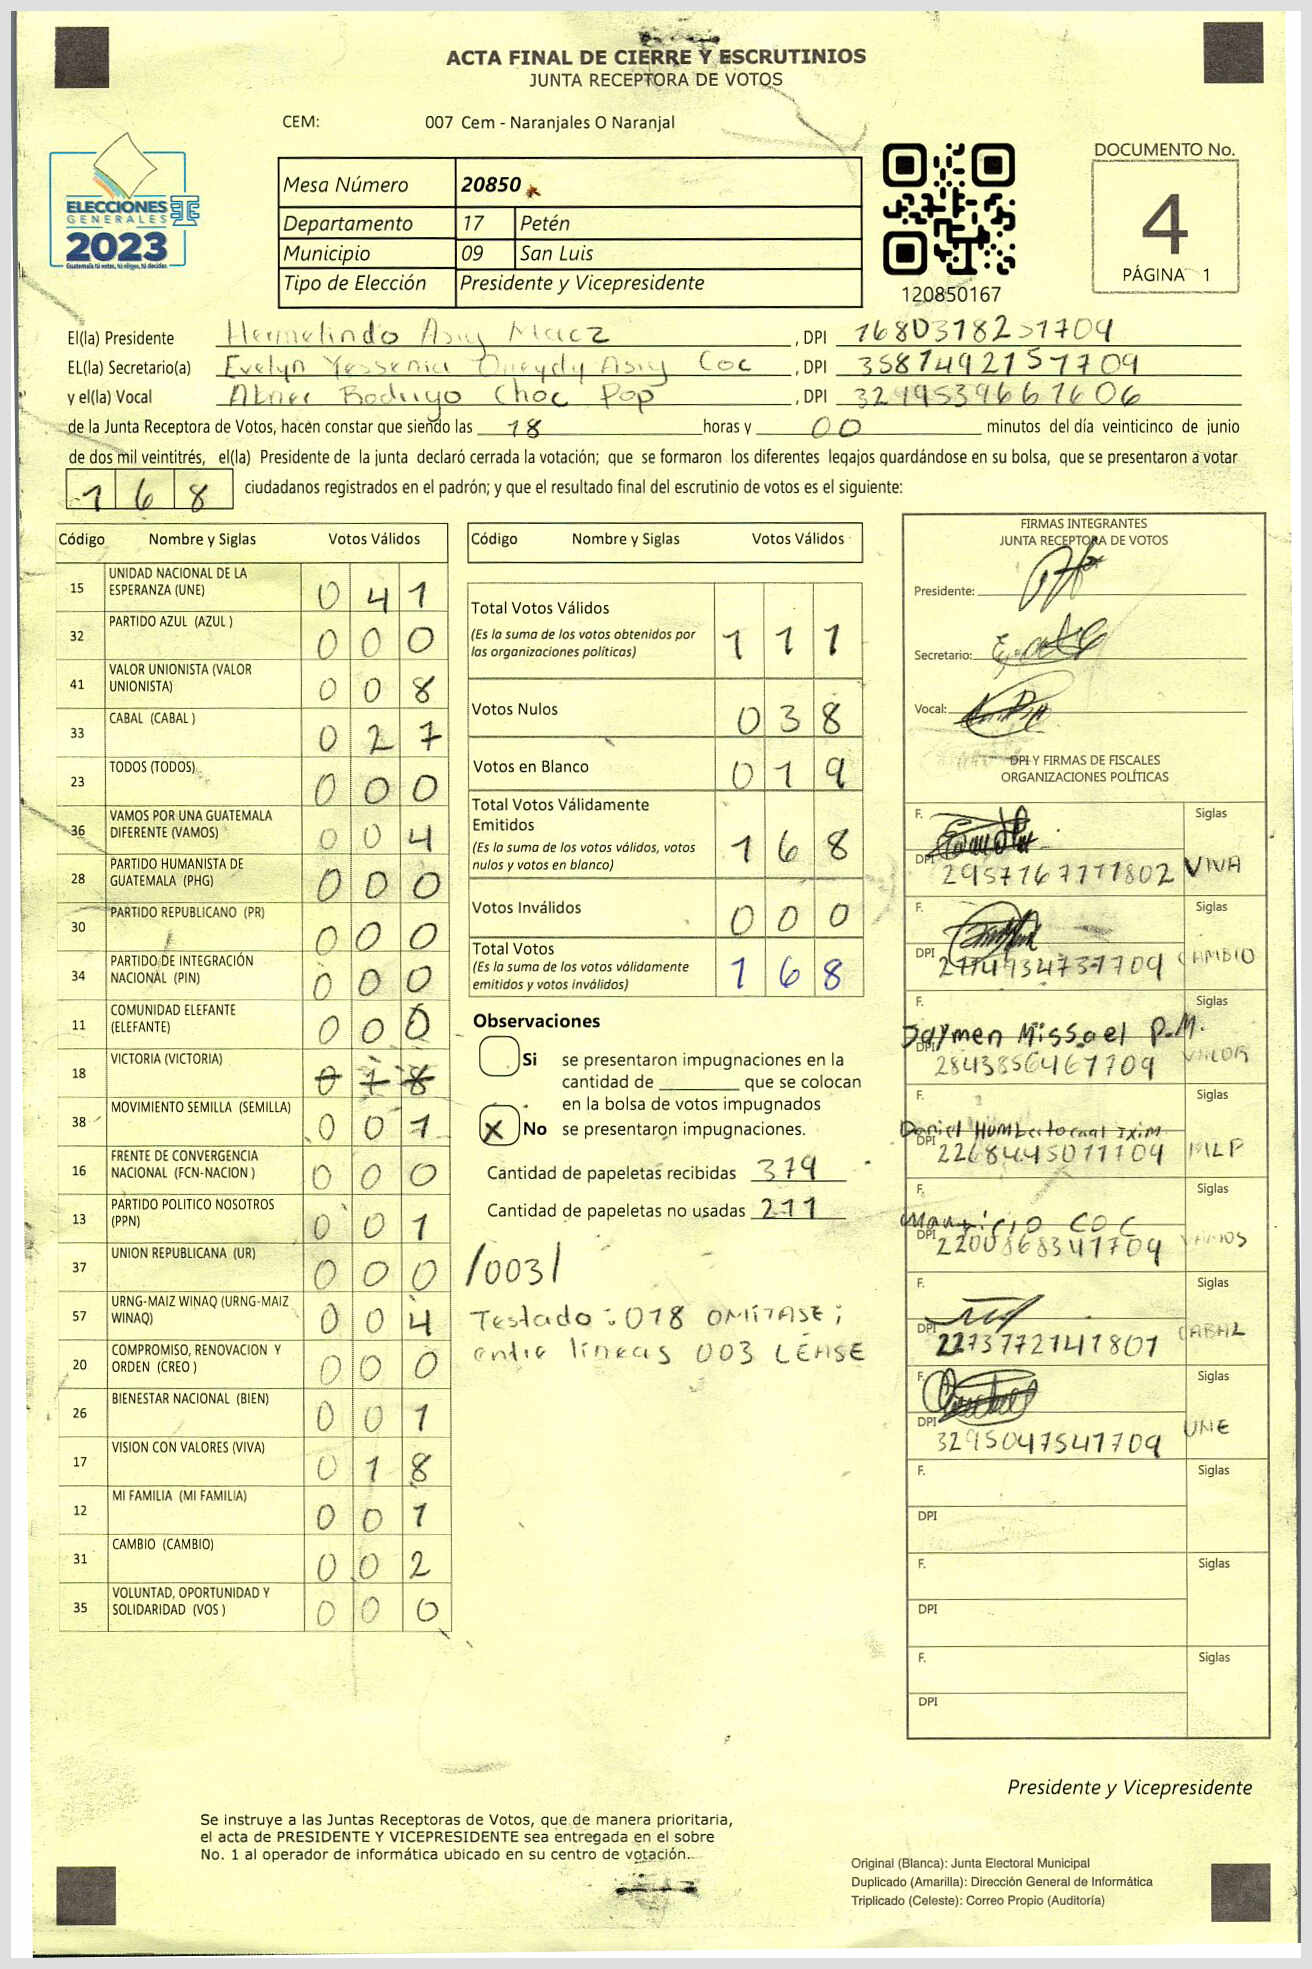 ACTA FINAL DE CIERRE Y ESCRUTINIOS
JUNTA RECEPTORA DE VOTOS
CEM: 007 Cem - Naranjales O Naranjal
ELECCIONES
GENERALES
2023
Guatemala tú votas, tú eliges, tú decides
Mesa Número 20850
Departamento 17 Petén
Municipio 09 San Luis
Tipo de Elección Presidente y Vicepresidente
120850167
DOCUMENTO No.
4
PÁGINA 1
El(la) Presidente Hermelindo Asig Maez , DPI 1680318251709
EL(la) Secretario(a) Evelyn Yessenia Asig Coc , DPI 3587492157709
y el(la) Vocal Abner Rodrigo Choc Pop , DPI
de la Junta Receptora de Votos, hacen constar que siendo las 18 horas y 00 minutos del día veinticinco de junio
de dos mil veintitrés, el(la) Presidente de la junta declaró cerrada la votación; que se formaron los diferentes legajos quardándose en su bolsa, que se presentaron a votar
168 ciudadanos registrados en el padrón; y que el resultado final del escrutinio de votos es el siguiente:
Código Nombre y Siglas Votos Válidos
15 UNIDAD NACIONAL DE LA ESPERANZA (UNE) 041
32 PARTIDO AZUL (AZUL ) 000
41 VALOR UNIONISTA (VALOR UNIONISTA) 008
33 CABAL (CABAL ) 027
23 TODOS (TODOS) 000
36 VAMOS POR UNA GUATEMALA DIFERENTE (VAMOS) 004
28 PARTIDO HUMANISTA DE GUATEMALA (PHG) 000
30 PARTIDO REPUBLICANO (PR) 000
34 PARTIDO DE INTEGRACIÓN NACIONAL (PIN) 000
11 COMUNIDAD ELEFANTE (ELEFANTE) 000
18 VICTORIA (VICTORIA) 018
38 MOVIMIENTO SEMILLA (SEMILLA) 001
16 FRENTE DE CONVERGENCIA NACIONAL (FCN-NACION ) 000
13 PARTIDO POLITICO NOSOTROS (PPN) 001
37 UNION REPUBLICANA (UR) 000
57 URNG-MAIZ WINAQ (URNG-MAIZ WINAQ) 004
20 COMPROMISO, RENOVACION Y ORDEN (CREO ) 000
26 BIENESTAR NACIONAL (BIEN) 001
17 VISION CON VALORES (VIVA) 018
12 MI FAMILIA (MI FAMILIA) 001
31 CAMBIO (CAMBIO) 002
35 VOLUNTAD, OPORTUNIDAD Y SOLIDARIDAD (VOS ) 000
Código Nombre y Siglas Votos Válidos
Total Votos Válidos 111
(Es la suma de los votos obtenidos por
las organizaciones políticas)
Votos Nulos 038
Votos en Blanco 019
Total Votos Válidamente
Emitidos 168
(Es la suma de los votos válidos, votos
nulos y votos en blanco)
Votos Inválidos 000
Total Votos 168
(Es la suma de los votos válidamente
emitidos y votos inválidos)
Observaciones
Si se presentaron impugnaciones en la
cantidad de ________ que se colocan
en la bolsa de votos impugnados
X No se presentaron impugnaciones.
Cantidad de papeletas recibidas 379
Cantidad de papeletas no usadas 211
/003/
Testado: 018 OMÍTASE;
entre líneas 003 LÉASE
FIRMAS INTEGRANTES
JUNTA RECEPTORA DE VOTOS
Presidente:
Secretario:
Vocal:
DPI Y FIRMAS DE FISCALES
ORGANIZACIONES POLÍTICAS
F. Siglas
DPI 2957767777802 VIVA
F. Siglas
DPI CAMBIO
F. Jaymen Missael P.M. Siglas
DPI 2843856467709 VALOR
F. Daniel Humberto Siglas
DPI 2268445077709 MLP
F. Mauricio COC Siglas
DPI 2200868347709 VAMOS
F. Siglas
DPI 2273772747801 CABAL
F. Siglas
DPI 3295047547709 UNE
F. Siglas
DPI
F. Siglas
DPI
F. Siglas
DPI
Presidente y Vicepresidente
Se instruye a las Juntas Receptoras de Votos, que de manera prioritaria,
el acta de PRESIDENTE Y VICEPRESIDENTE sea entregada en el sobre
No. 1 al operador de informática ubicado en su centro de votación.
Original (Blanca): Junta Electoral Municipal
Duplicado (Amarilla): Dirección General de Informática
Triplicado (Celeste): Correo Propio (Auditoría)